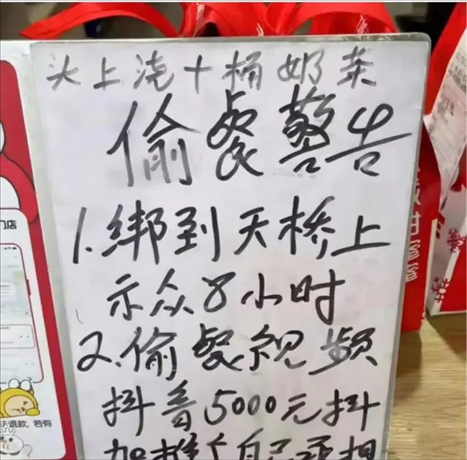 头上浇十桶奶茶
偷餐警告
1.绑到天桥上
示众8小时
2.偷餐视频
抖音5000元抖
加推
自己
门店
退款，若有